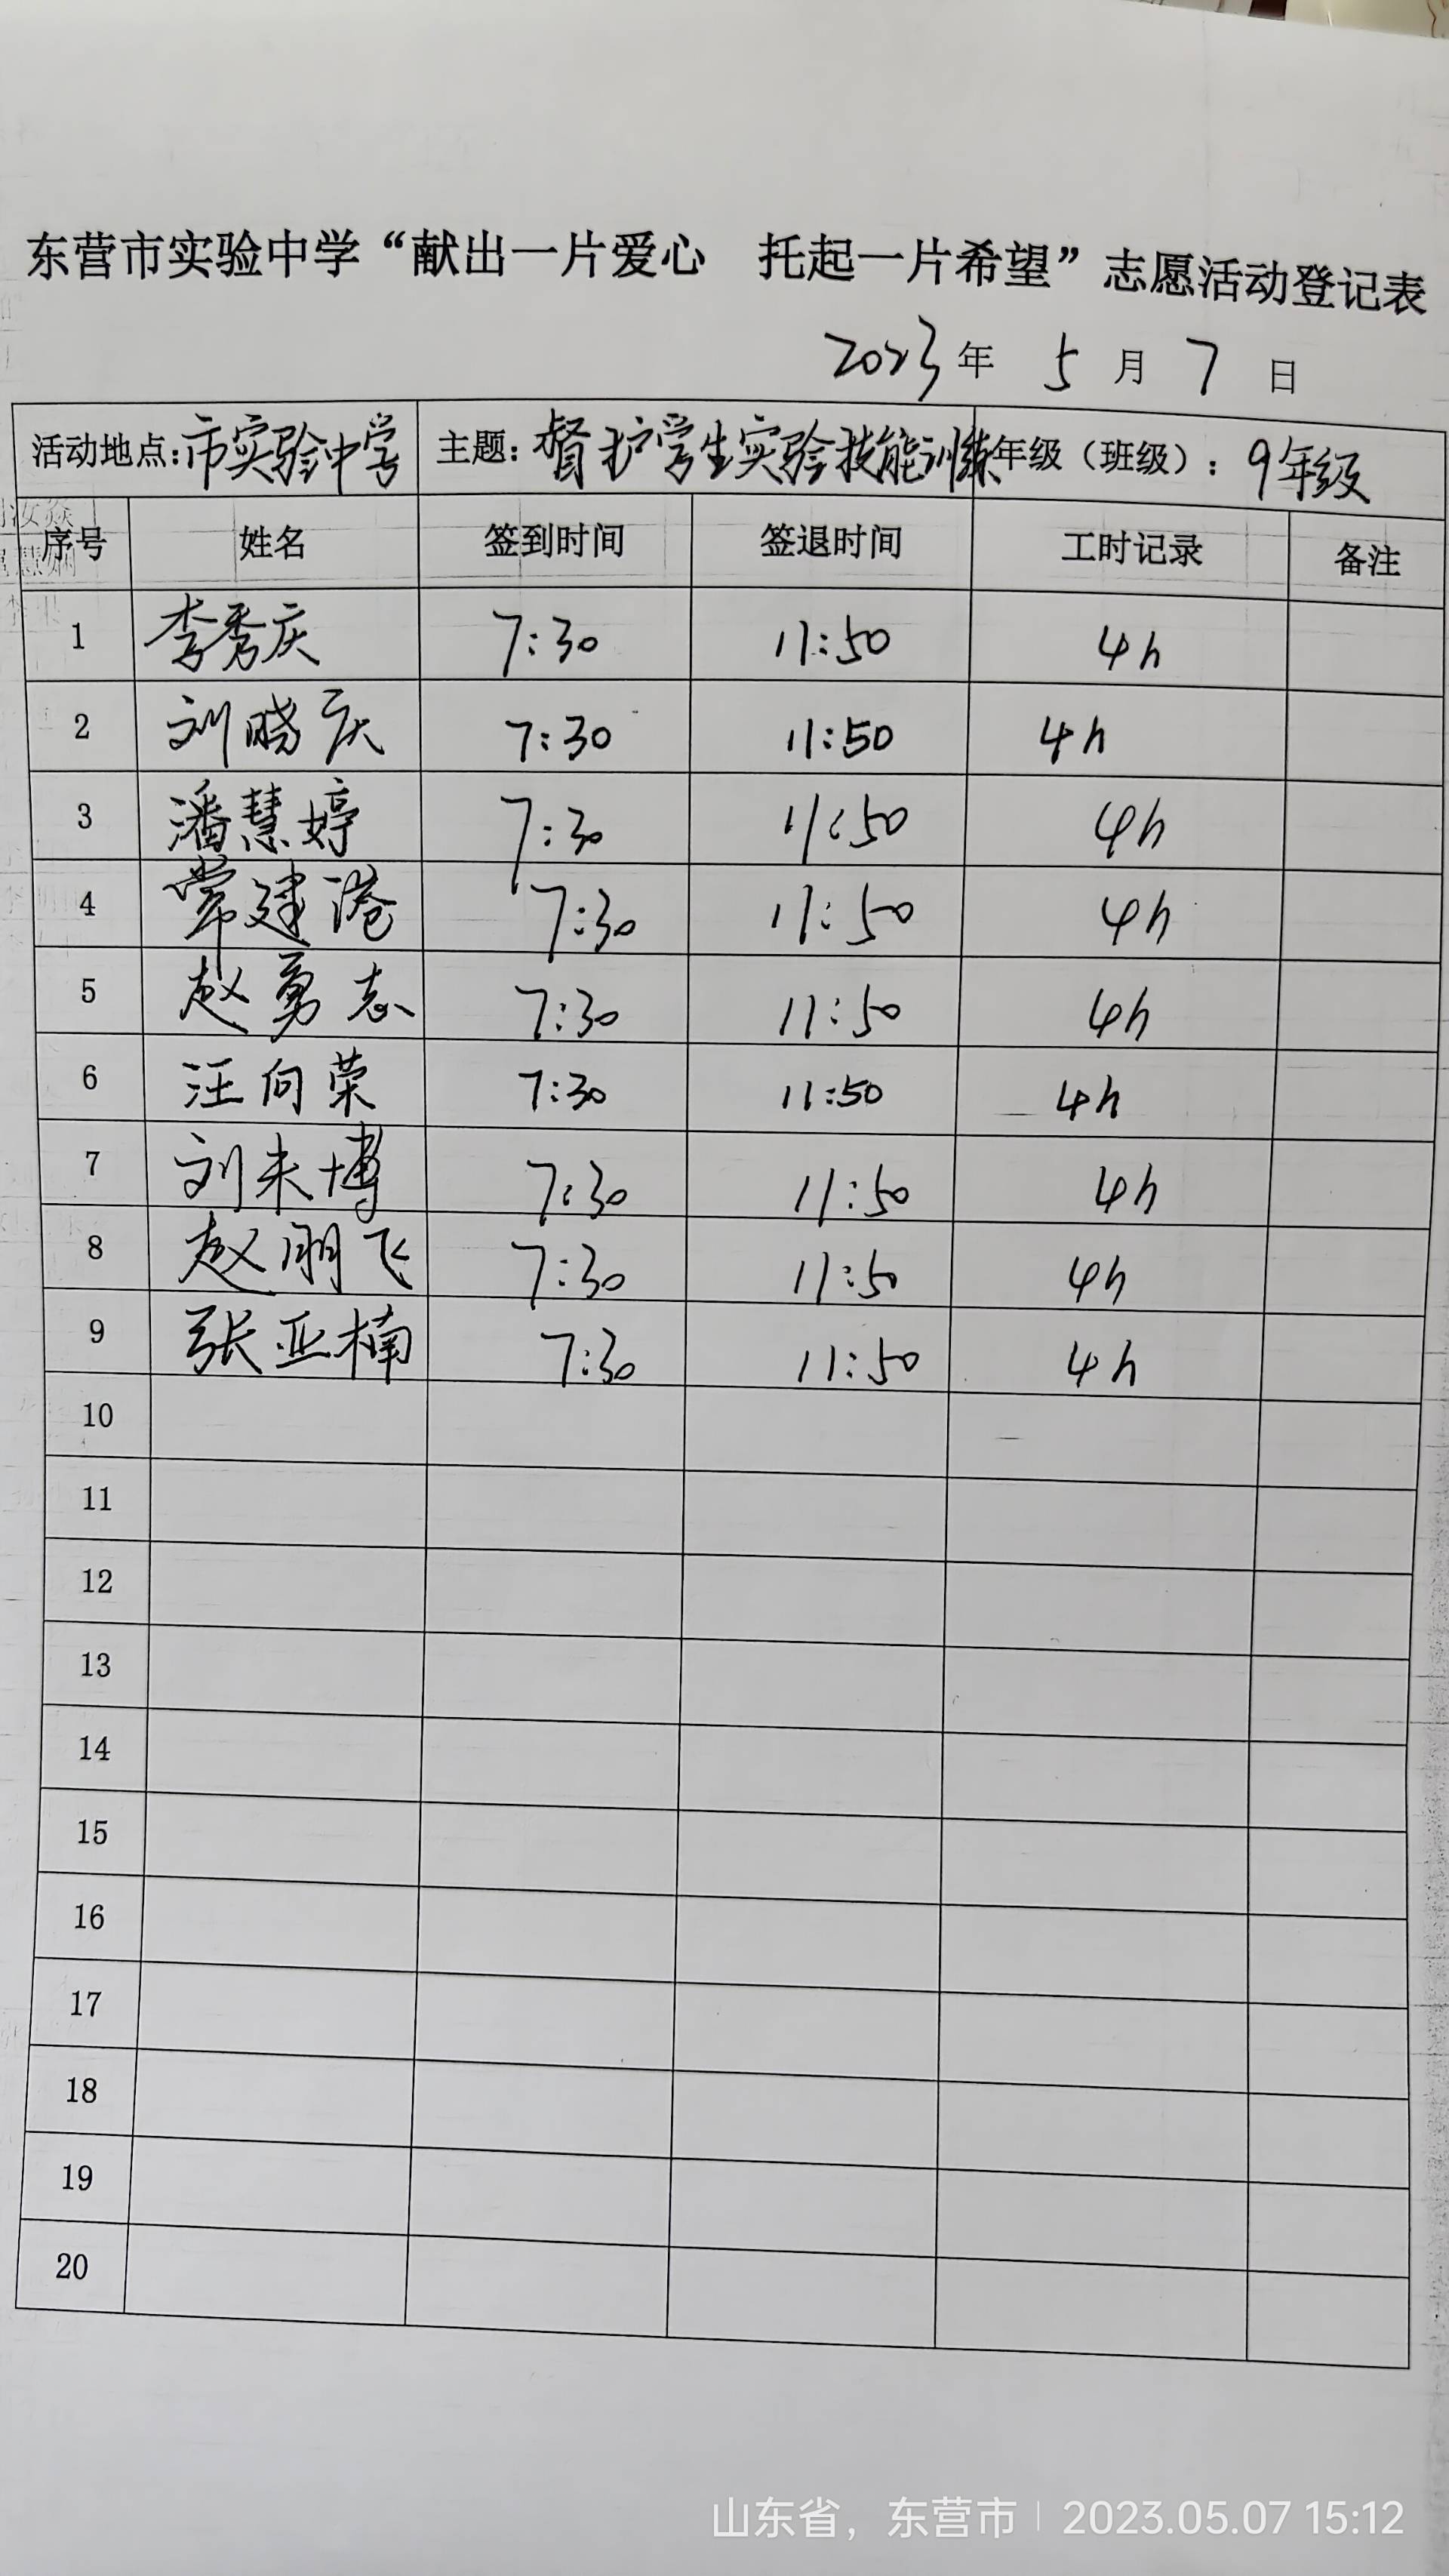 东营市实验中学“献出一片爱心 托起一片希望”志愿活动登记表
2023年 5月 7日
活动地点:市实验中学 主题:督护学生实验技能训练 年级（班级）:9年级
序号 姓名 签到时间 签退时间 工时记录 备注
1 李秀庆 7:30 11:50 4h
2 刘晓庆 7:30 11:50 4h
3 潘慧婷 7:30 11:50 4h
4 常建港 7:30 11:50 4h
5 赵勇志 7:30 11:50 4h
6 汪向荣 7:30 11:50 4h
7 刘来博 7:30 11:50 4h
8 赵朋飞 7:30 11:50 4h
9 张亚楠 7:30 11:50 4h
10
11
12
13
14
15
16
17
18
19
20
山东省，东营市 | 2023.05.07 15:12